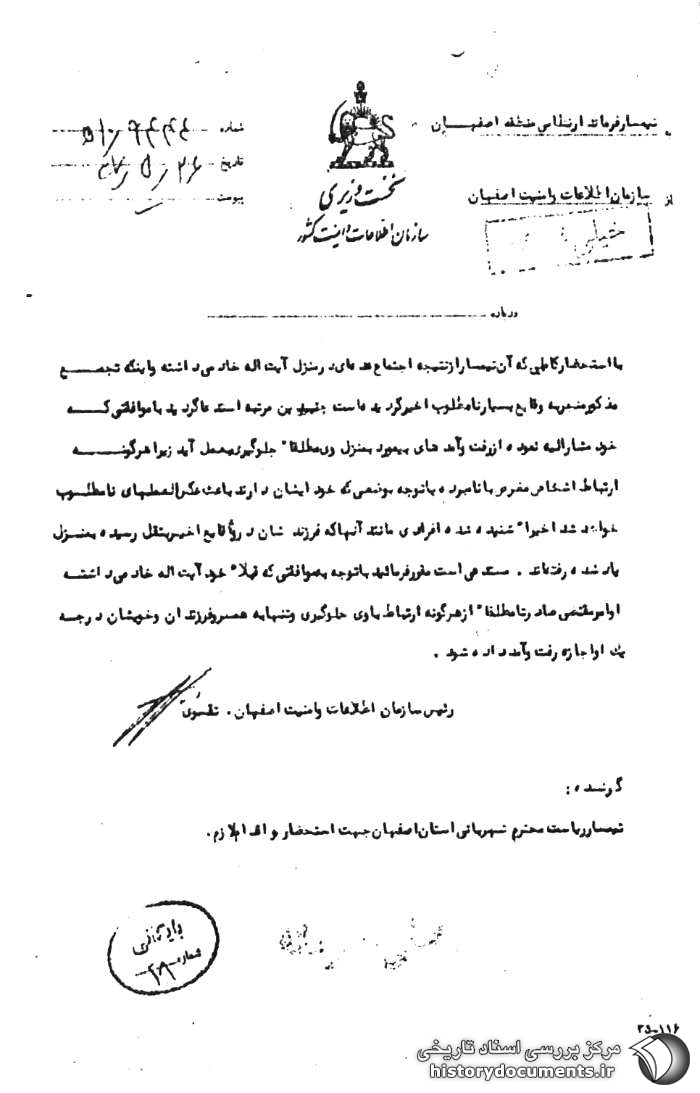 تیمسار فرماندار نظامی منطقه اصفهان
از سازمان اطلاعات و امنیت اصفهان
خیلی
نخست وزیری
سازمان اطلاعات و امنیت کشور
شماره
تاریخ ۲۶ / ۵ /
پیوست
درباره
با استحضار کاملی که آن تیمسار از نتیجه اجتماع عده‌ای در منزل آیت اله خادمی داشته و اینکه تجمع
مذکور منجر به وقایع بسیار نامطلوب اخیر گردیده است بدین مرتبه استدعا گردید با موافقتی که
خود مشارالیه نموده از رفت و آمدهای بیمورد بمنزل وی مطلقا" جلوگیری بعمل آید زیرا هرگونه
ارتباط اشخاص مغرض با نامبرده با توجه بوضعی که خود ایشان دارند باعث عکس‌العملهای نامطلوب
خواهد شد اخیرا" شنیده شده افرادی مانند آنهاکه فرزندشان در وقایع اخیر بقتل رسیده بمنزل
یاد شده رفته‌اند . مستدعی است مقرر فرمائید با توجه بموافقتی که قبلا" خود آیت اله خادمی داشته
اوامر مقتضی صادر تا مطلقا" از هرگونه ارتباط با وی جلوگیری و تنها به همسر و فرزندان و خویشان درجه
یک او اجازه رفت و آمد داده شود .
رئیس سازمان اطلاعات و امنیت اصفهان . تقوی
گیرنده :
تیمسار ریاست محترم شهربانی استان اصفهان جهت استحضار و اقدام لازم .
بایگانی
شماره
۳۵-۱۱۶
مرکز بررسی اسناد تاریخی
historydocuments.ir